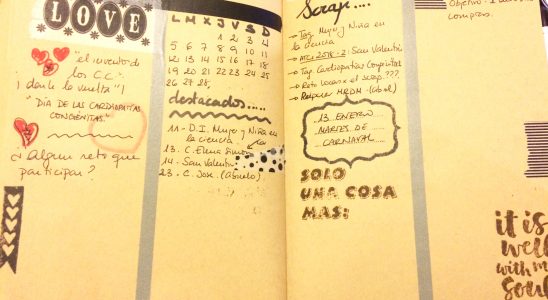 LOVE
"el invento de
los C.C."
¡ dale la vuelta "!
"DIA DE LAS CARDIOPATIAS
CONGENITAS."
¿ Algun reto que
participar?
L M X J V S D
1 2 3 4
5 6 7 8 9 10 11
12 13 14 15 16 17 18
19 20 21 22 23 24 25
26 27 28
destacados.....
11 - D.I. Mujer y Niña en
la ciencia
13. C. Elena
14. San Valentin
23. C. José. (Abuelo)
Scrap....
Tag Mujer y Niña en
la ciencia
ATC's 2018 - 2: San Valentin
Tag Cardiopatias Congenitas
Reto locas x el scrap ???
13 ENERO
MARTES DE
CARNAVAL
SOLO
UNA COSA
MAS:
Objetivo:
compras.
it is
well
with my
soul